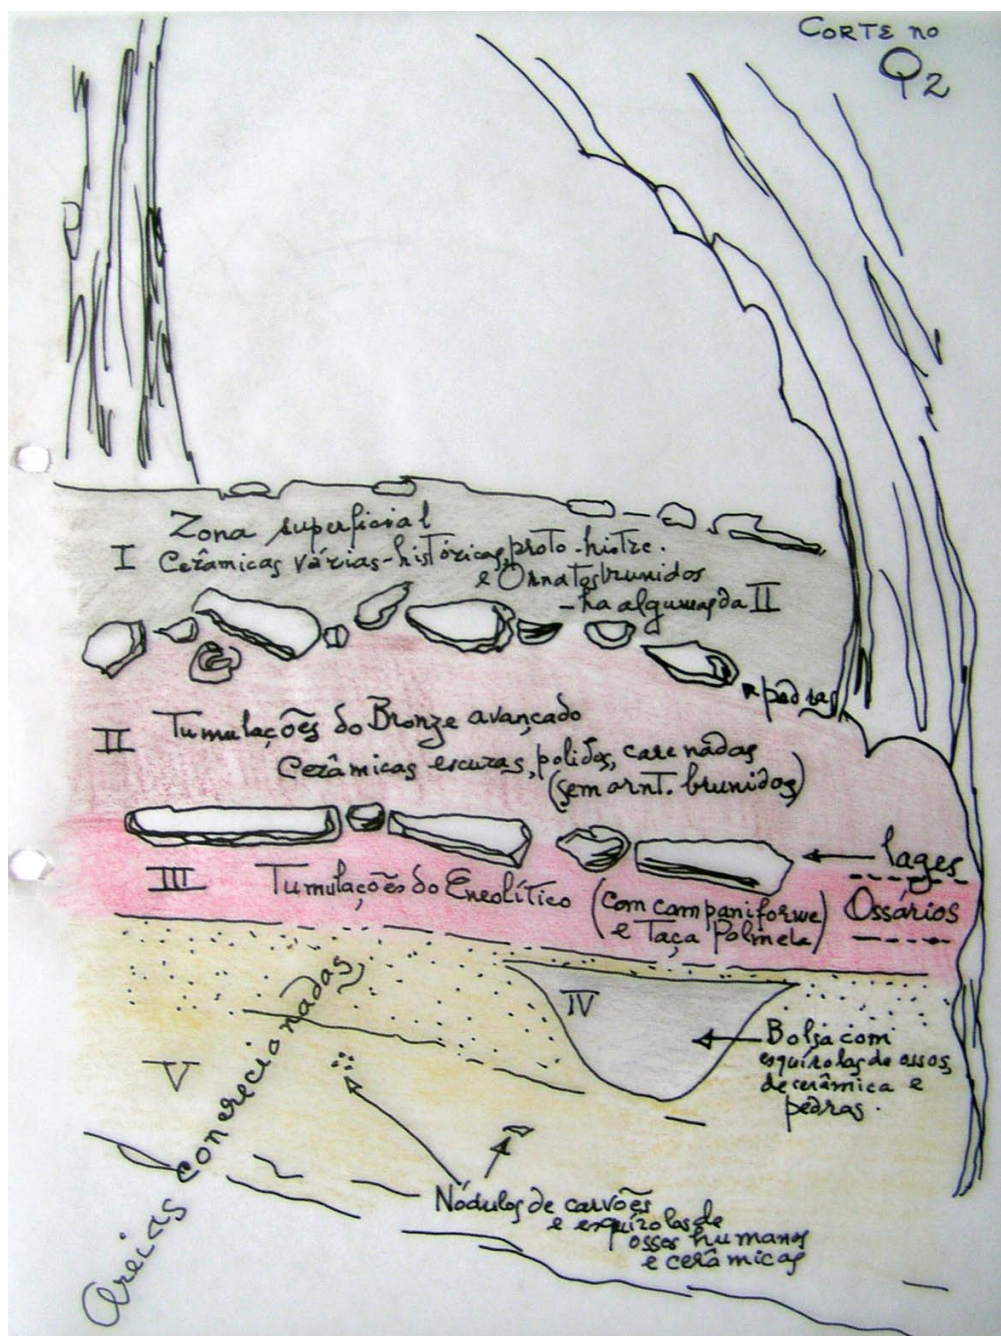 CORTE no
Q2
Zona superficial
I Cerâmicas várias-históricas, proto-histre.
e Ornatos brunidos
-ha algumas da II
pedras
II Tumulações do Bronze avançado
Cerâmicas escuras, polidas, carenadas
(sem ornt. brunidos)
lages
III Tumulações do Eneolítico (com campaniforme
e Taça Polmela)
Ossários
IV
Bolsa com
esquírolas de ossos,
de cerâmica e
pedras.
V
Areias concrecionadas
Nódulos de carvões
e esquírolas de
ossos humanos
e cerâmicas